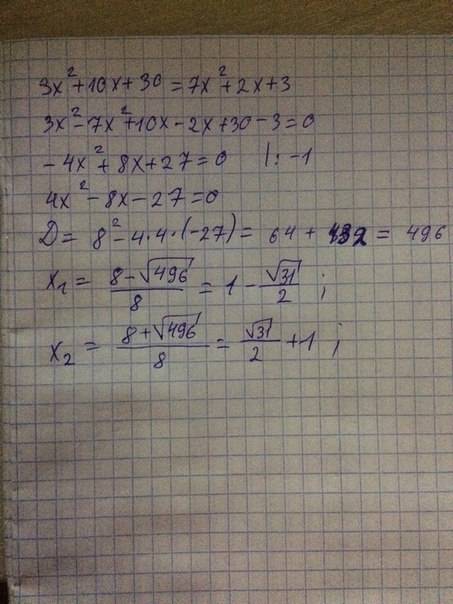 3x²+10x+30=7x²+2x+3
3x²-7x²+10x-2x+30-3=0
-4x²+8x+27=0 |:-1
4x²-8x-27=0
D= 8²-4·4·(-27)= 64+432= 496
x₁= (8-√496)/8 = 1-√31/2 ;
x₂= (8+√496)/8 = √31/2+1 ;